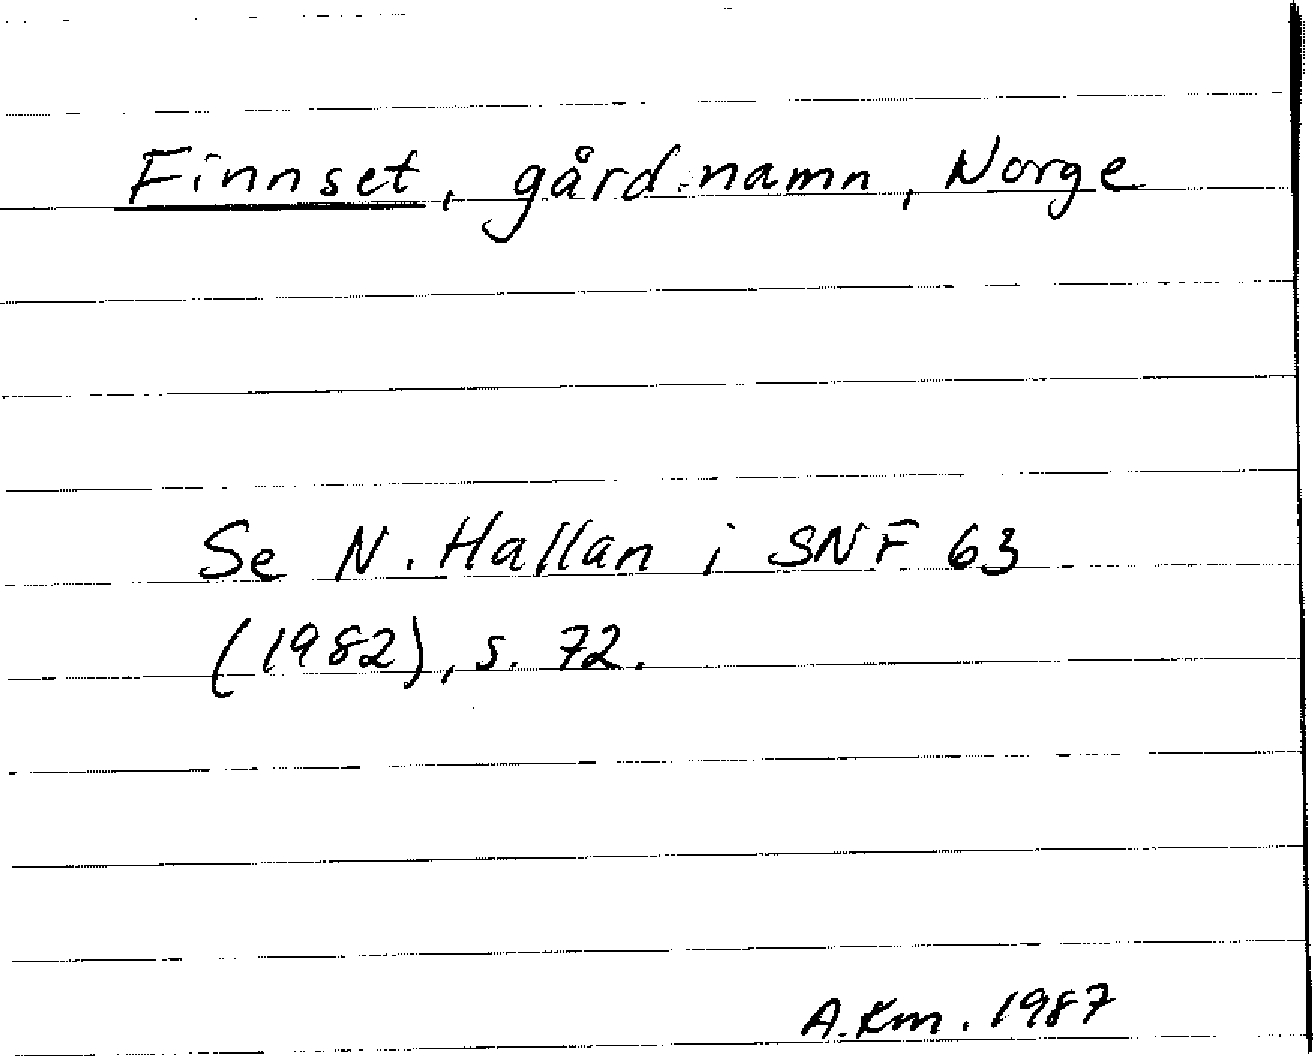 Finnset, gård.namn, Norge
Se N. Hallan i SNF 63
(1982), s. 72.
A.Km. 1987